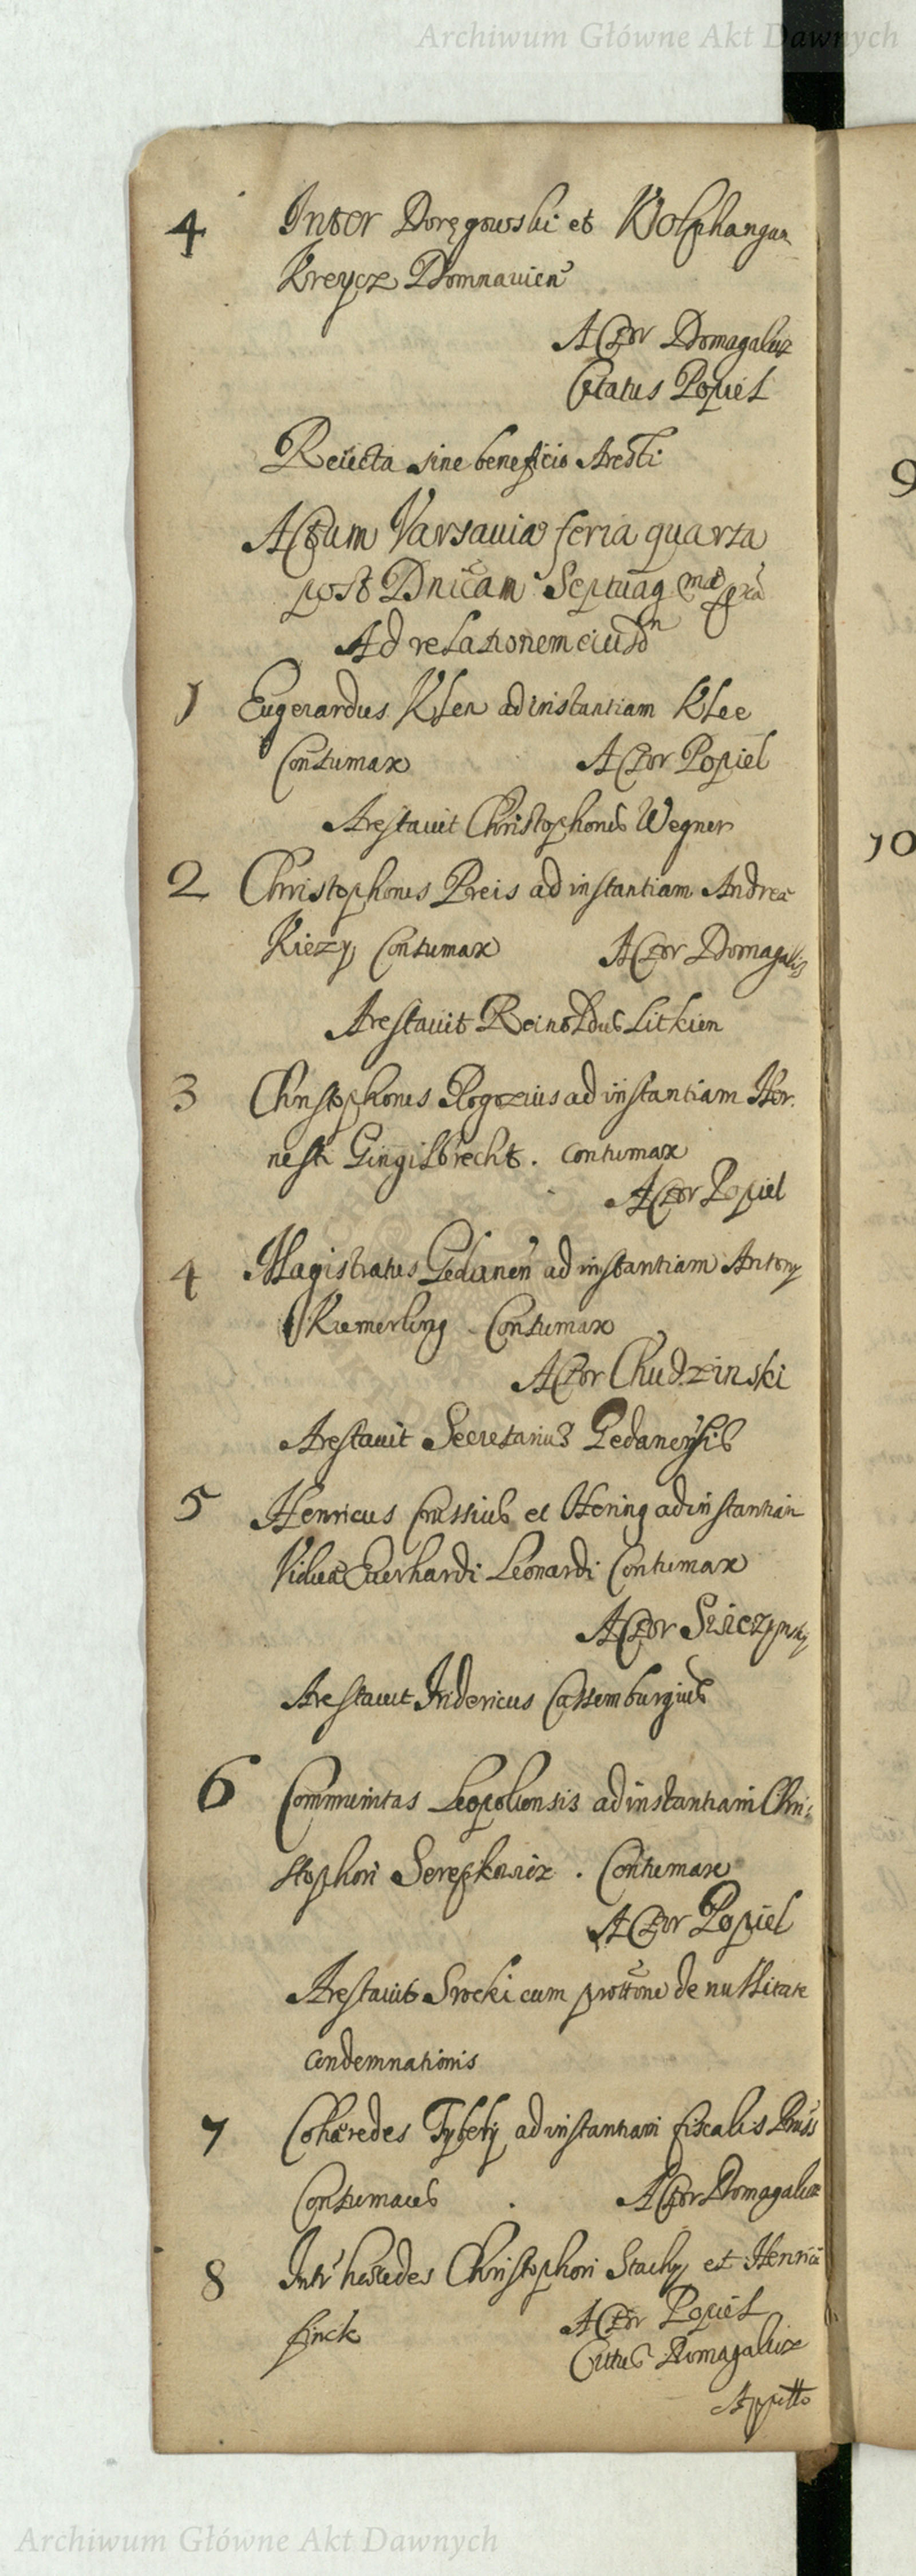 Archiwum Główne Akt Dawnych
4 Inter Doręgowski et Wolphangum
Kreycz Domnavien
Actor Domagalicz
Citatus Popiel
Reiecta sine beneficio Aresti
Actum Varsavia feria quarta
post Dnicam Septuag
Ad relationem eiusd
1 Eugerardus Klen ad instantiam Klee
Contumax Actor Popiel
Arestavit Christophorus Wegner
2 Christophorus Preis ad instantiam Andrea
Kiezy Contumax Actor Domagalic
Arestavit Reinoldus Litkien
3 Christophorus Rogozius ad instantiam Her
nesti Gingilbrecht. contumax
Actor Popiel
4 Magistratus Gedanen ad instantiam Antony
Kiemerling Contumax
Actor Chudzinski
Arestavit Secretarius Gedanensis
5 Henricus Crussius et Hering ad instantiam
Vidua Everhardi Leonardi Contumax
Actor Siiczynsky
Arestavit Fridericus Cassemburgius
6 Communitas Leopoliensis ad instantiam Chri:
stophori Serepkowicz . Contumax
Actor Popiel
Arestavit Srocki cum prottone de nullitate
condemnationis
7 Cohæredes ad instantiam fiscalis Pruss
Contumaces . Actor Domagalicz
8 Intr hæredes Christophori Stachy et Henrici
finck Actor Popiel
Cittus Domagalicz
Appetto
9
10
Archiwum Główne Akt Dawnych